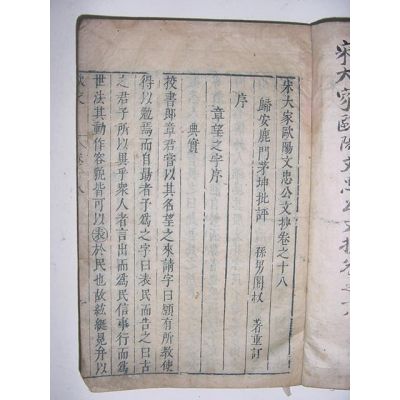 宋大家歐陽文忠公文抄卷
宋大家歐陽文忠公文抄卷之十八
歸安鹿門茅坤批評 孫男闇叔 著重訂
序
章望之字序
典實
校書郎章君嘗以其名望之來請字曰願有所教使
得以勉焉而自勗者予爲之字曰表民而告之曰古
之君子所以異乎衆人者言出而爲民信事行而爲
世法其動作容貌皆可以表於民也故紘綖冕弁以